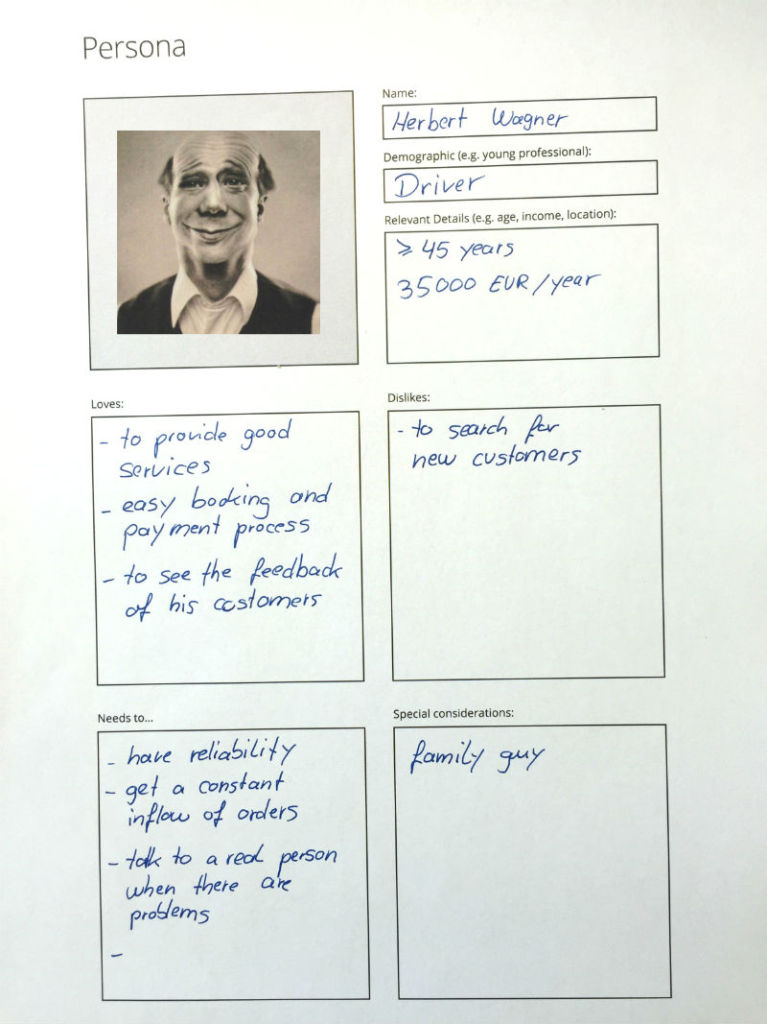 Persona
Name:
Herbert Wagner
Demographic (e.g. young professional):
Driver
Relevant Details (e.g. age, income, location):
≥ 45 years
35000 EUR/year
Loves:
- to provide good
services
- easy booking and
payment process
- to see the feedback
of his costomers
Dislikes:
- to search for
new customers
Needs to...
- have reliability
- get a constant
inflow of orders
- talk to a real person
when there are
problems
-
Special considerations:
family guy